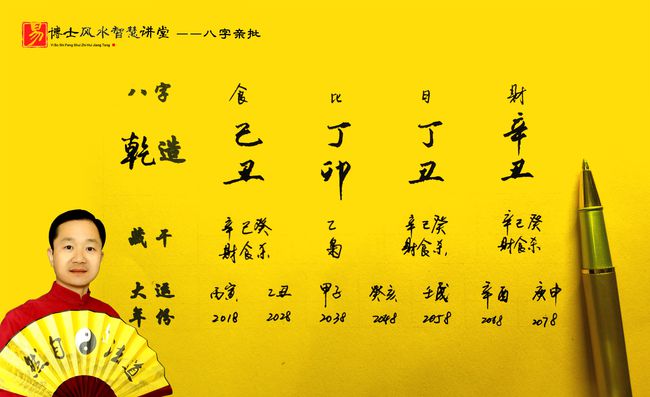 易 博士风水智慧讲堂 ——八字亲批
Yi Bo Shi Feng Shui Zhi Hui Jiang Tang
八字 食 比 日 财
乾造 己 丁 丁 辛
丑 卯 丑 丑
藏干 辛己癸 乙 辛己癸 辛己癸
财食杀 枭 财食杀 财食杀
大运 丙寅 乙丑 甲子 癸亥 壬戌 辛酉 庚申
年份 2018 2028 2038 2048 2058 2068 2078
道法自然